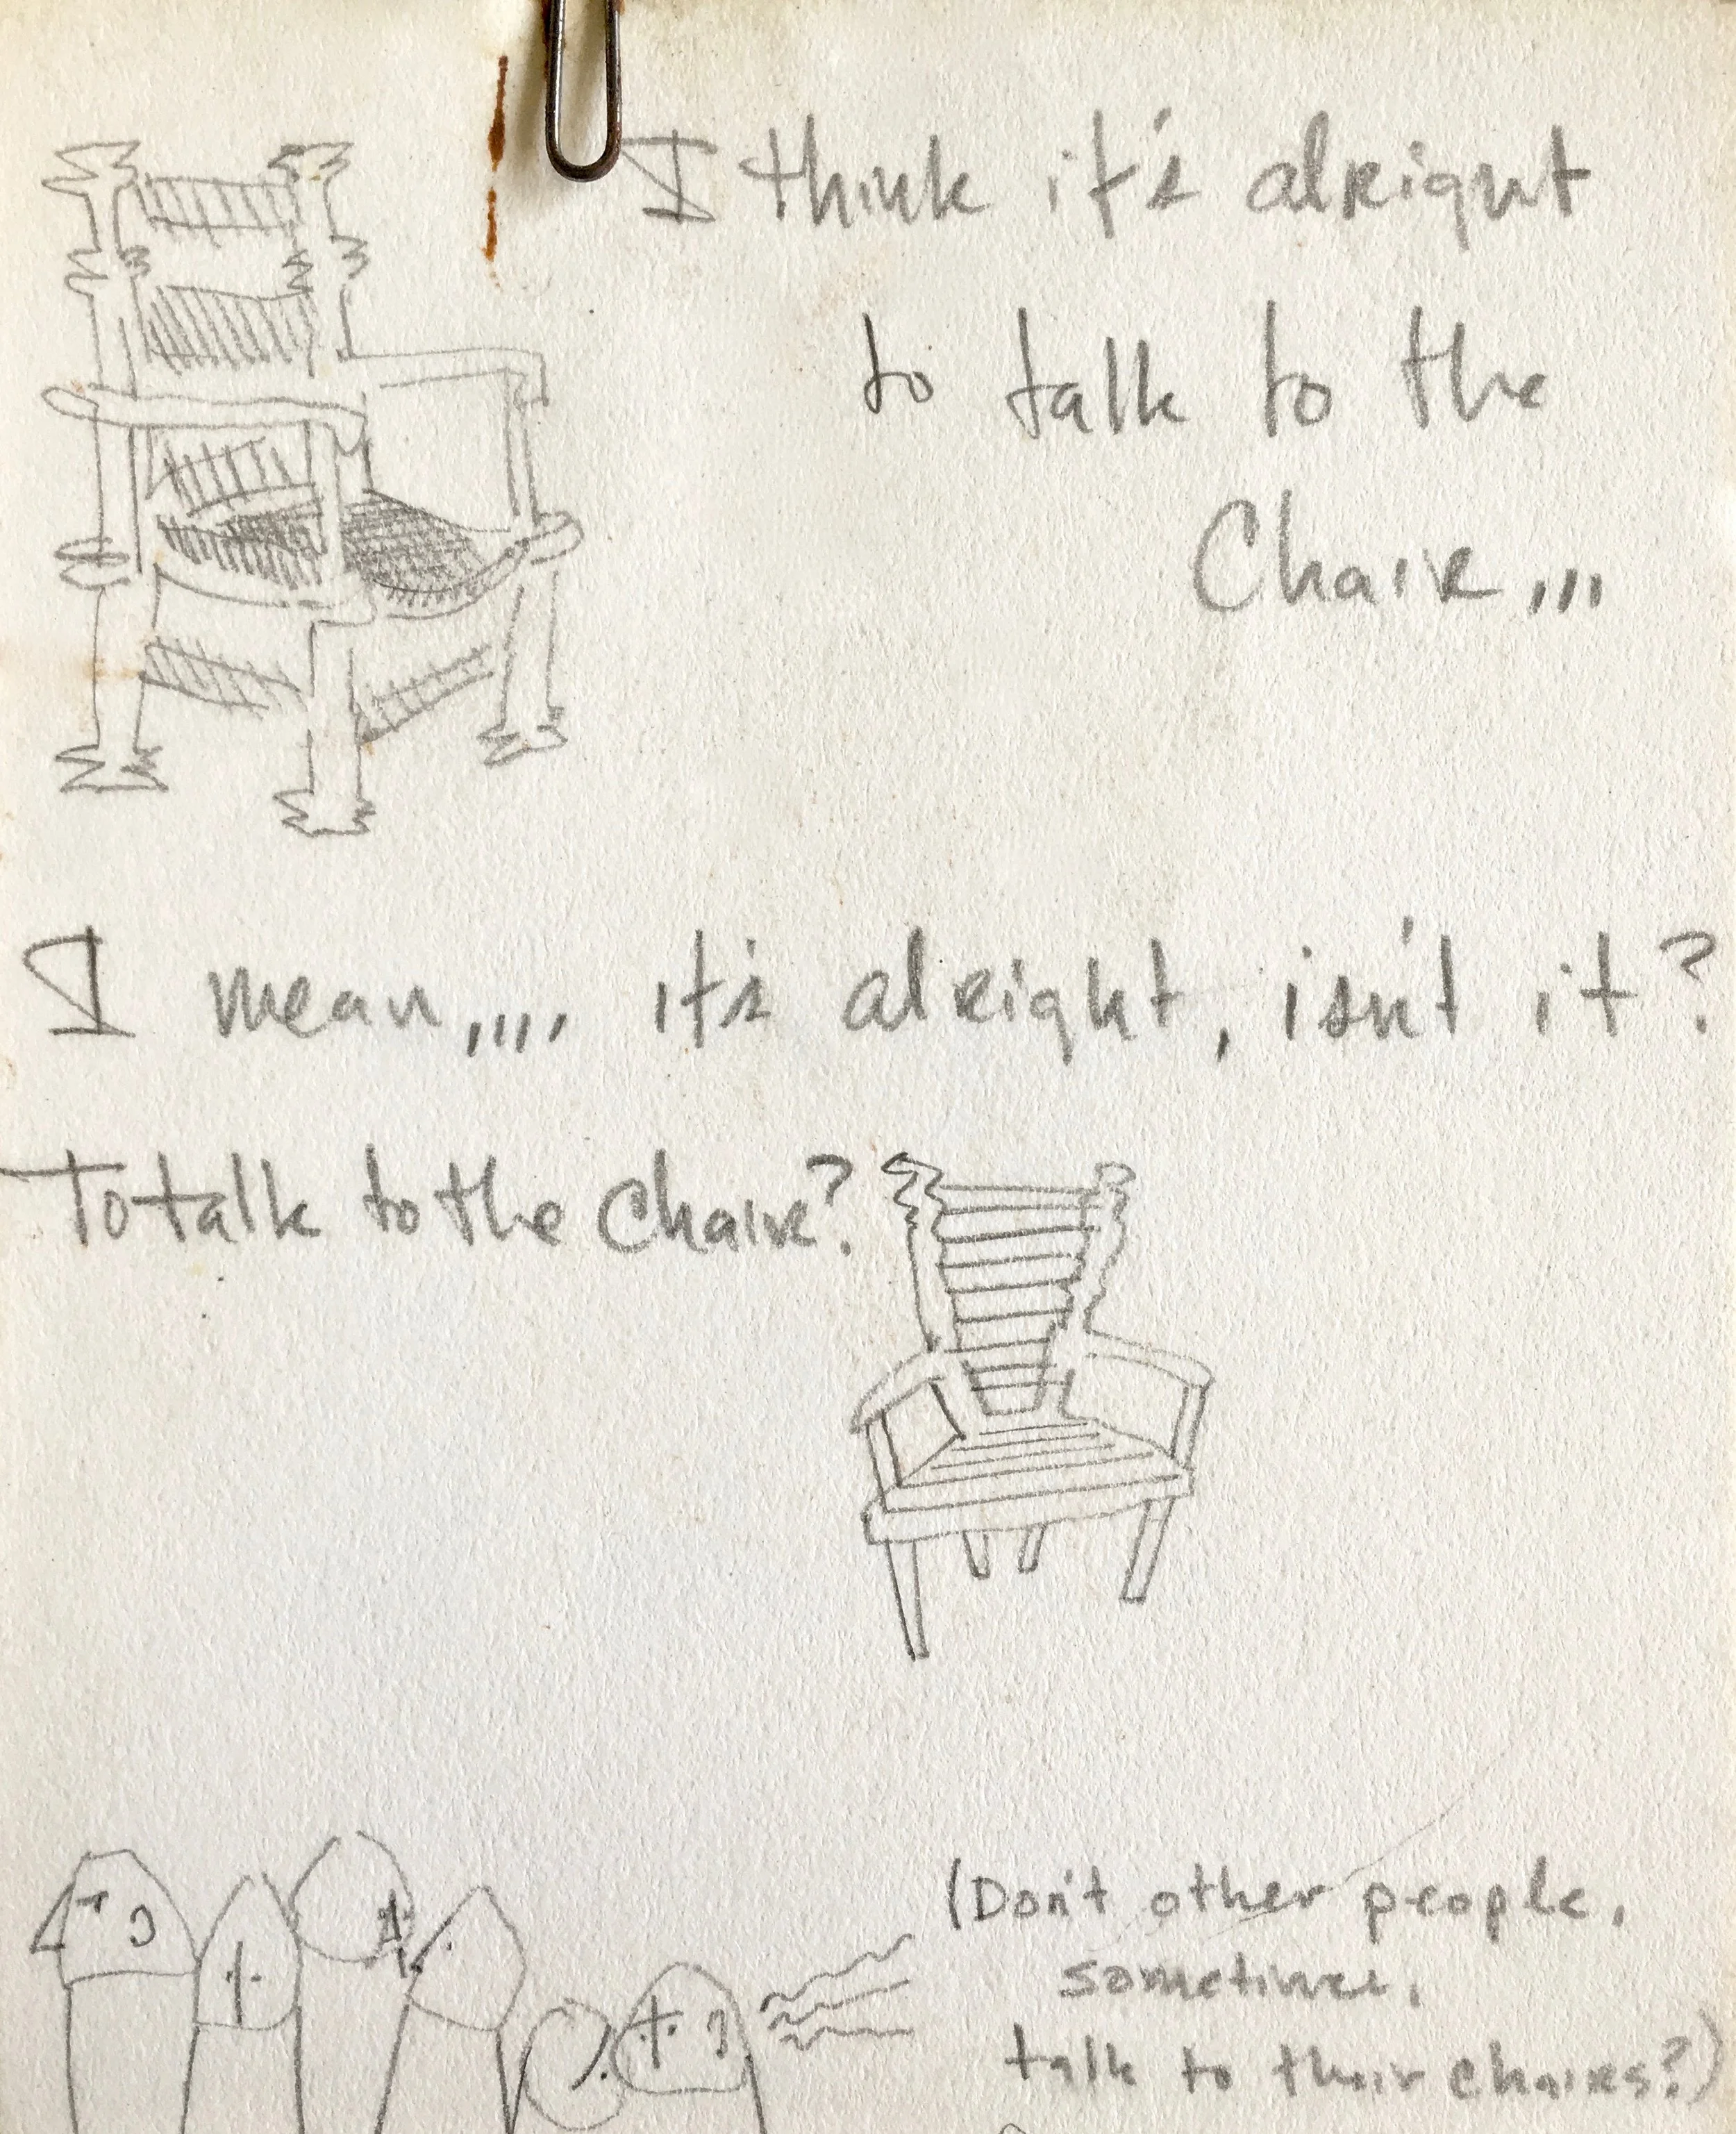 I think it's alright
to talk to the
Chair,,,
I mean,,,, it's alright, isn't it?
To talk to the Chair?
(Don't other people,
sometimes,
talk to their chairs?)